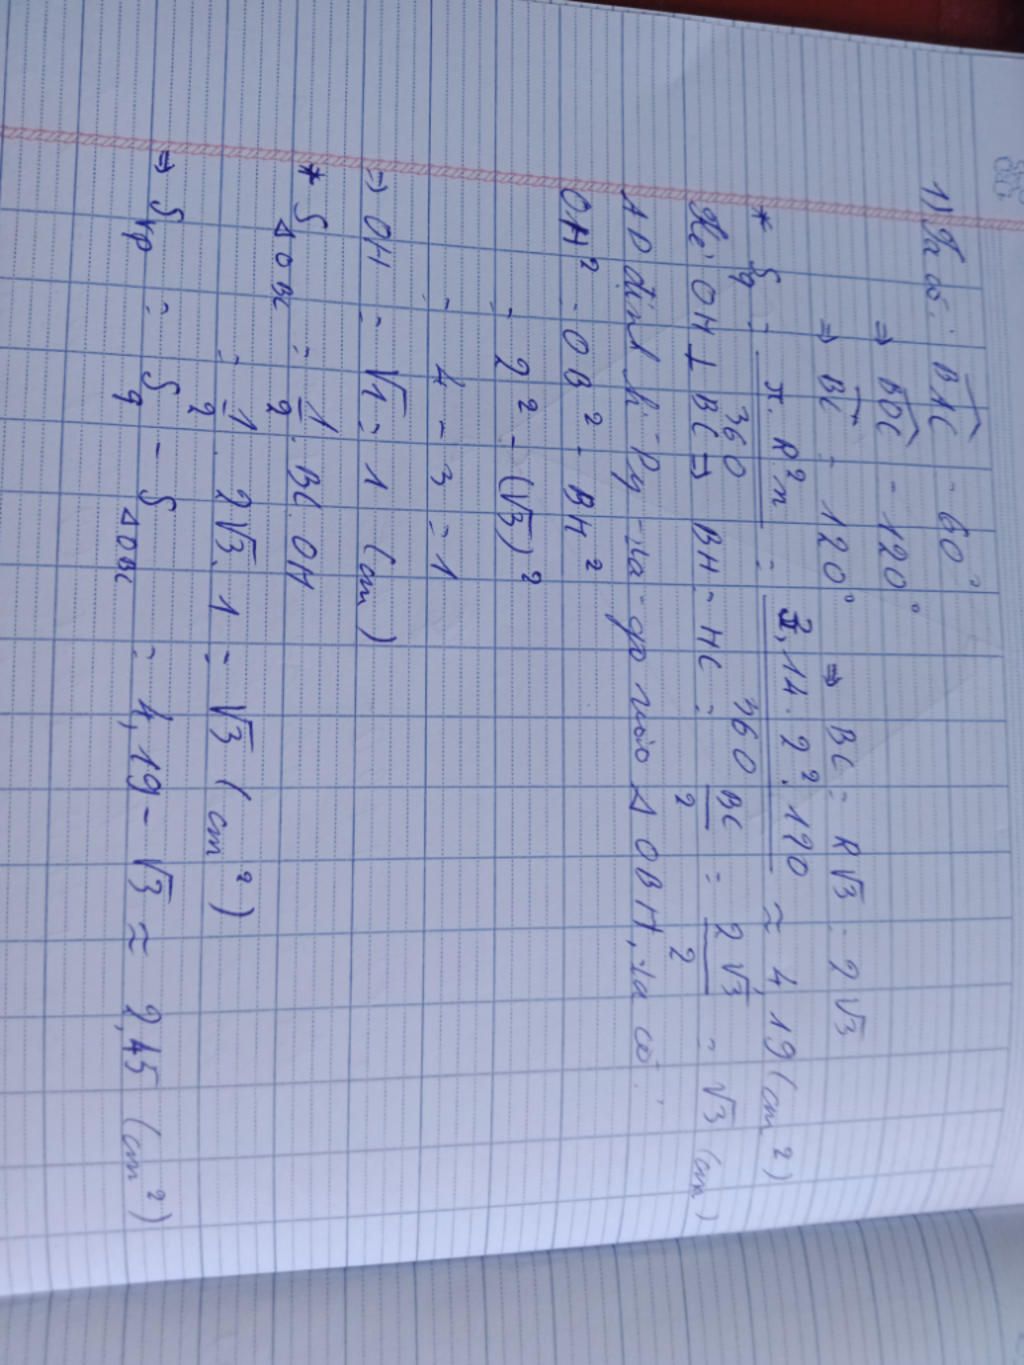 1) Ta có: BAC = 60°
⇒ BOC = 120°
⇒ BC = 120° ⇒ BC = R√3 = 2√3
* Sq = π.R²n / 360 = 3,14.2².120 / 360 ≈ 4,19 (cm²)
Kẻ OH ⊥ BC ⇒ BH = HC = BC/2 = 2√3/2 = √3 (cm)
AD định lí Py-ta-go vào Δ OBH, ta có:
OH² = OB² - BH²
= 2² - (√3)²
= 4 - 3 = 1
⇒ OH = √1 = 1 (cm)
* SΔOBC = 1/2 . BC . OH
= 1/2 . 2√3 . 1 = √3 (cm²)
⇒ Svp = Sq - SΔOBC = 4,19 - √3 ≈ 2,45 (cm²)